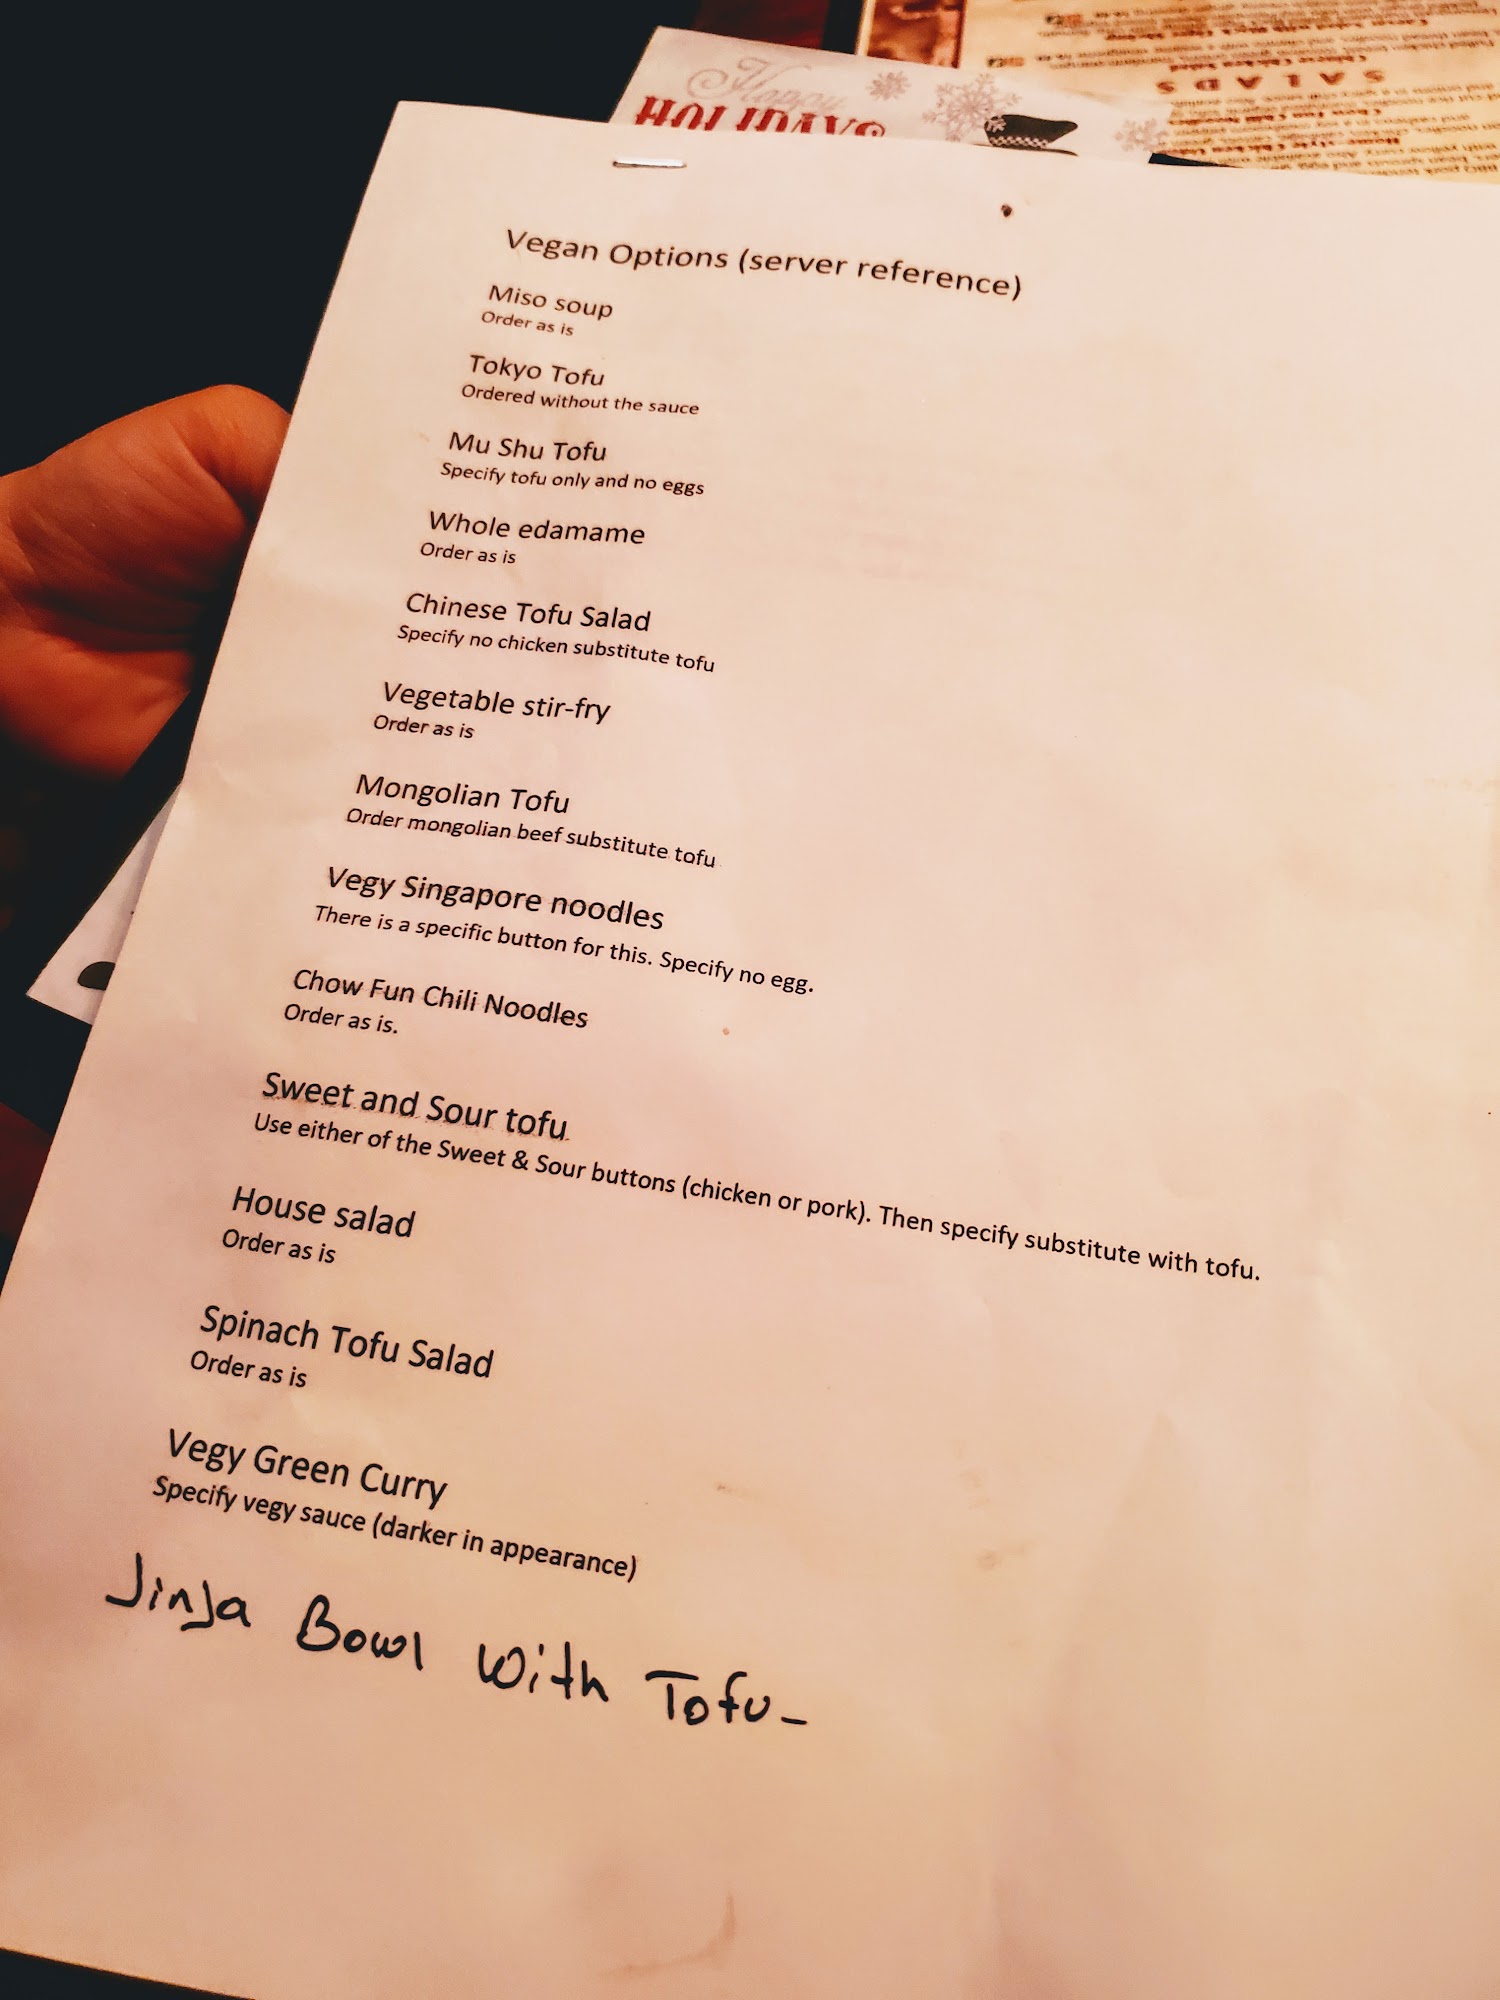 Happy
HOLIDAYS
SALADS
Chinese Chicken Salad
Vegan Options (server reference)
Miso soup
Order as is
Tokyo Tofu
Ordered without the sauce
Mu Shu Tofu
Specify tofu only and no eggs
Whole edamame
Order as is
Chinese Tofu Salad
Specify no chicken substitute tofu
Vegetable stir-fry
Order as is
Mongolian Tofu
Order mongolian beef substitute tofu
Vegy Singapore noodles
There is a specific button for this. Specify no egg.
Chow Fun Chili Noodles
Order as is.
Sweet and Sour tofu
Use either of the Sweet & Sour buttons (chicken or pork). Then specify substitute with tofu.
House salad
Order as is
Spinach Tofu Salad
Order as is
Vegy Green Curry
Specify vegy sauce (darker in appearance)
Jinja Bowl with Tofu-